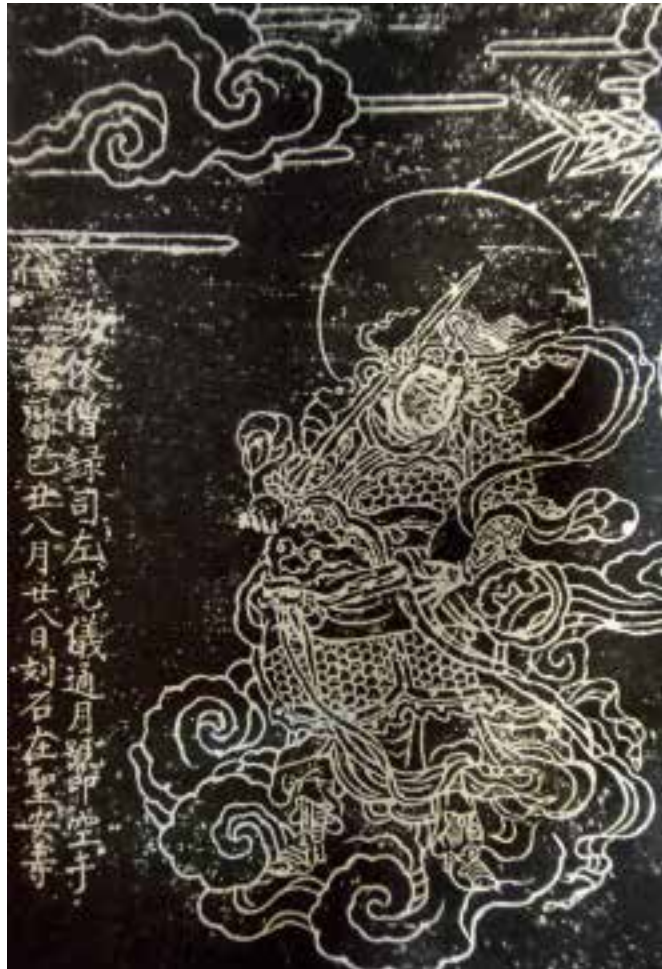 依僧録司左覚儀通月號印空于
萬曆己丑八月廿八日刻石在聖安寺